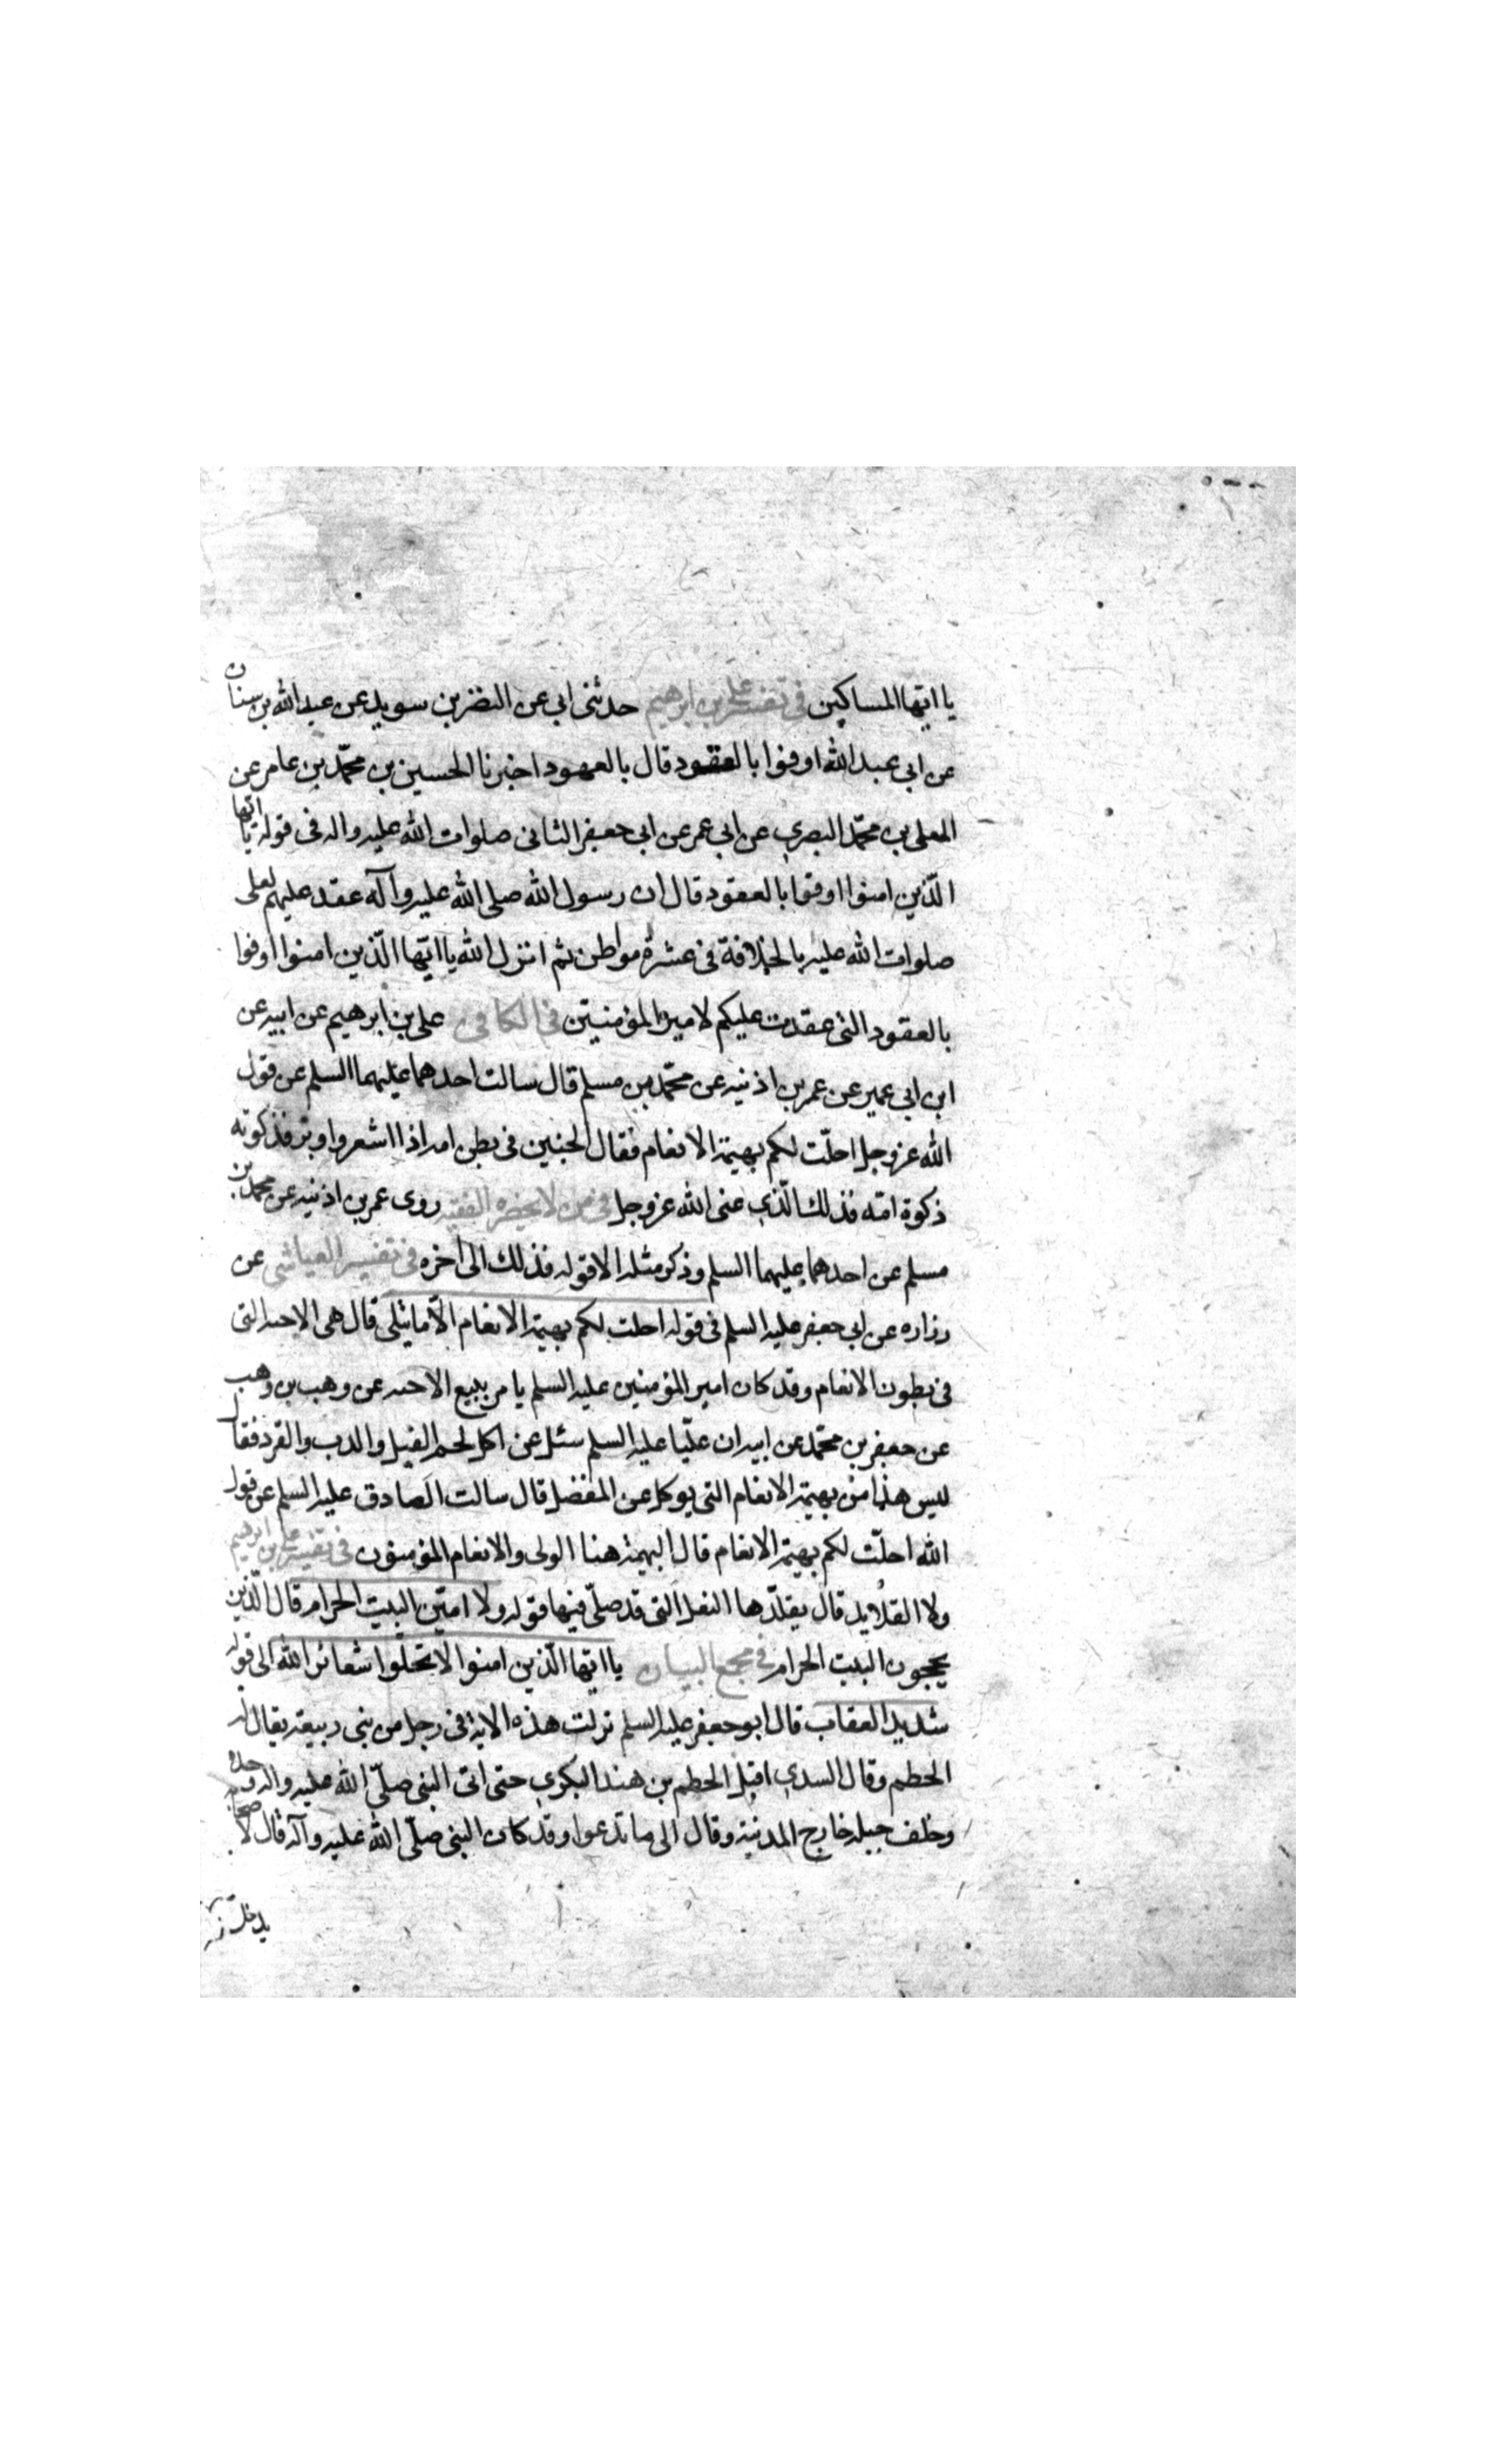 يا ايها المساكين في تفسير علي بن ابرهيم حدثني ابي عن النضر بن سويد عن عبد الله بن سنان
عن ابي عبد الله اوفوا بالعقود قال بالعهود اخبرنا الحسين بن محمّد بن عامر عن
المعلى بن محمّد البصري عن ابي عمر عن ابي جعفر الثاني صلوات الله عليه واله في قوله يا ايها
الّذين امنوا اوفوا بالعقود قال ان رسول الله صلى الله عليه وآله عقد عليهم لعلى
صلوات الله عليه بالخلافة في عشرة مواطن ثم انزل الله يا ايّها الّذين امنوا اوفوا
بالعقود التي عقدت عليكم لامير المؤمنين في الكافي على بن ابرهيم عن ابيه عن
ابن ابي عمير عن عمر بن اذنيه عن محمّد بن مسلم قال سالت احدهما عليهما السلم عن قول
الله عز وجل احلّت لكم بهيمة الانعام فقال الجنين في بطن امه اذا اشعر واوبر فذكوته
ذكوة امّه فذلك الّذي عنى الله عز وجل في من لا يحضره الفقيه روى عمر بن اذنيه عن محمد بن
مسلم عن احدهما عليهما السلم وذكر مثله الا قوله فذلك الى اخره في تفسير العياشي عن
زراره عن ابي جعفر عليه السلم في قوله احلت لكم بهيمة الانعام الّا ما يتلى قال هى الاجنه التى
في بطون الانعام وقد كان امير المؤمنين عليه السلم يامر ببيع الاجنه عن وهب بن وهب
عن جعفر بن محمّد عن ابيه ان عليّا عليه السلم سئل عن اكل لحم الفيل والدب والقرد فقال
ليس هذا من بهيمة الانعام التى يوكل عن المفضل قال سالت الصادق عليه السلم عن قول
الله احلّت لكم بهيمة الانعام قال البهيمة هنا الولى والانعام المؤمنون في تفسير علي بن ابرهيم
ولا القلايد قال يقلّدها النعل التى قد صلّى فيها قوله ولا امّين البيت الحرام قال الّذين
يحجون البيت الحرام في مجمع البيان يا ايّها الّذين امنوا لا تحلّوا شعائر الله الى قوله
شديد العقاب قال ابو جعفر عليه السلم نزلت هذه الاية في رجل من بنى ربيعة يقال له
الحطم وقال السدي اقبل الحطم بن هند البكري حتى اتى النبى صلّى الله عليه واله وحده
وخلف خيله خارج المدينة وقال الى ما تدعوا وقد كان النبى صلّى الله عليه وآله قال لاصحابه
يدخل